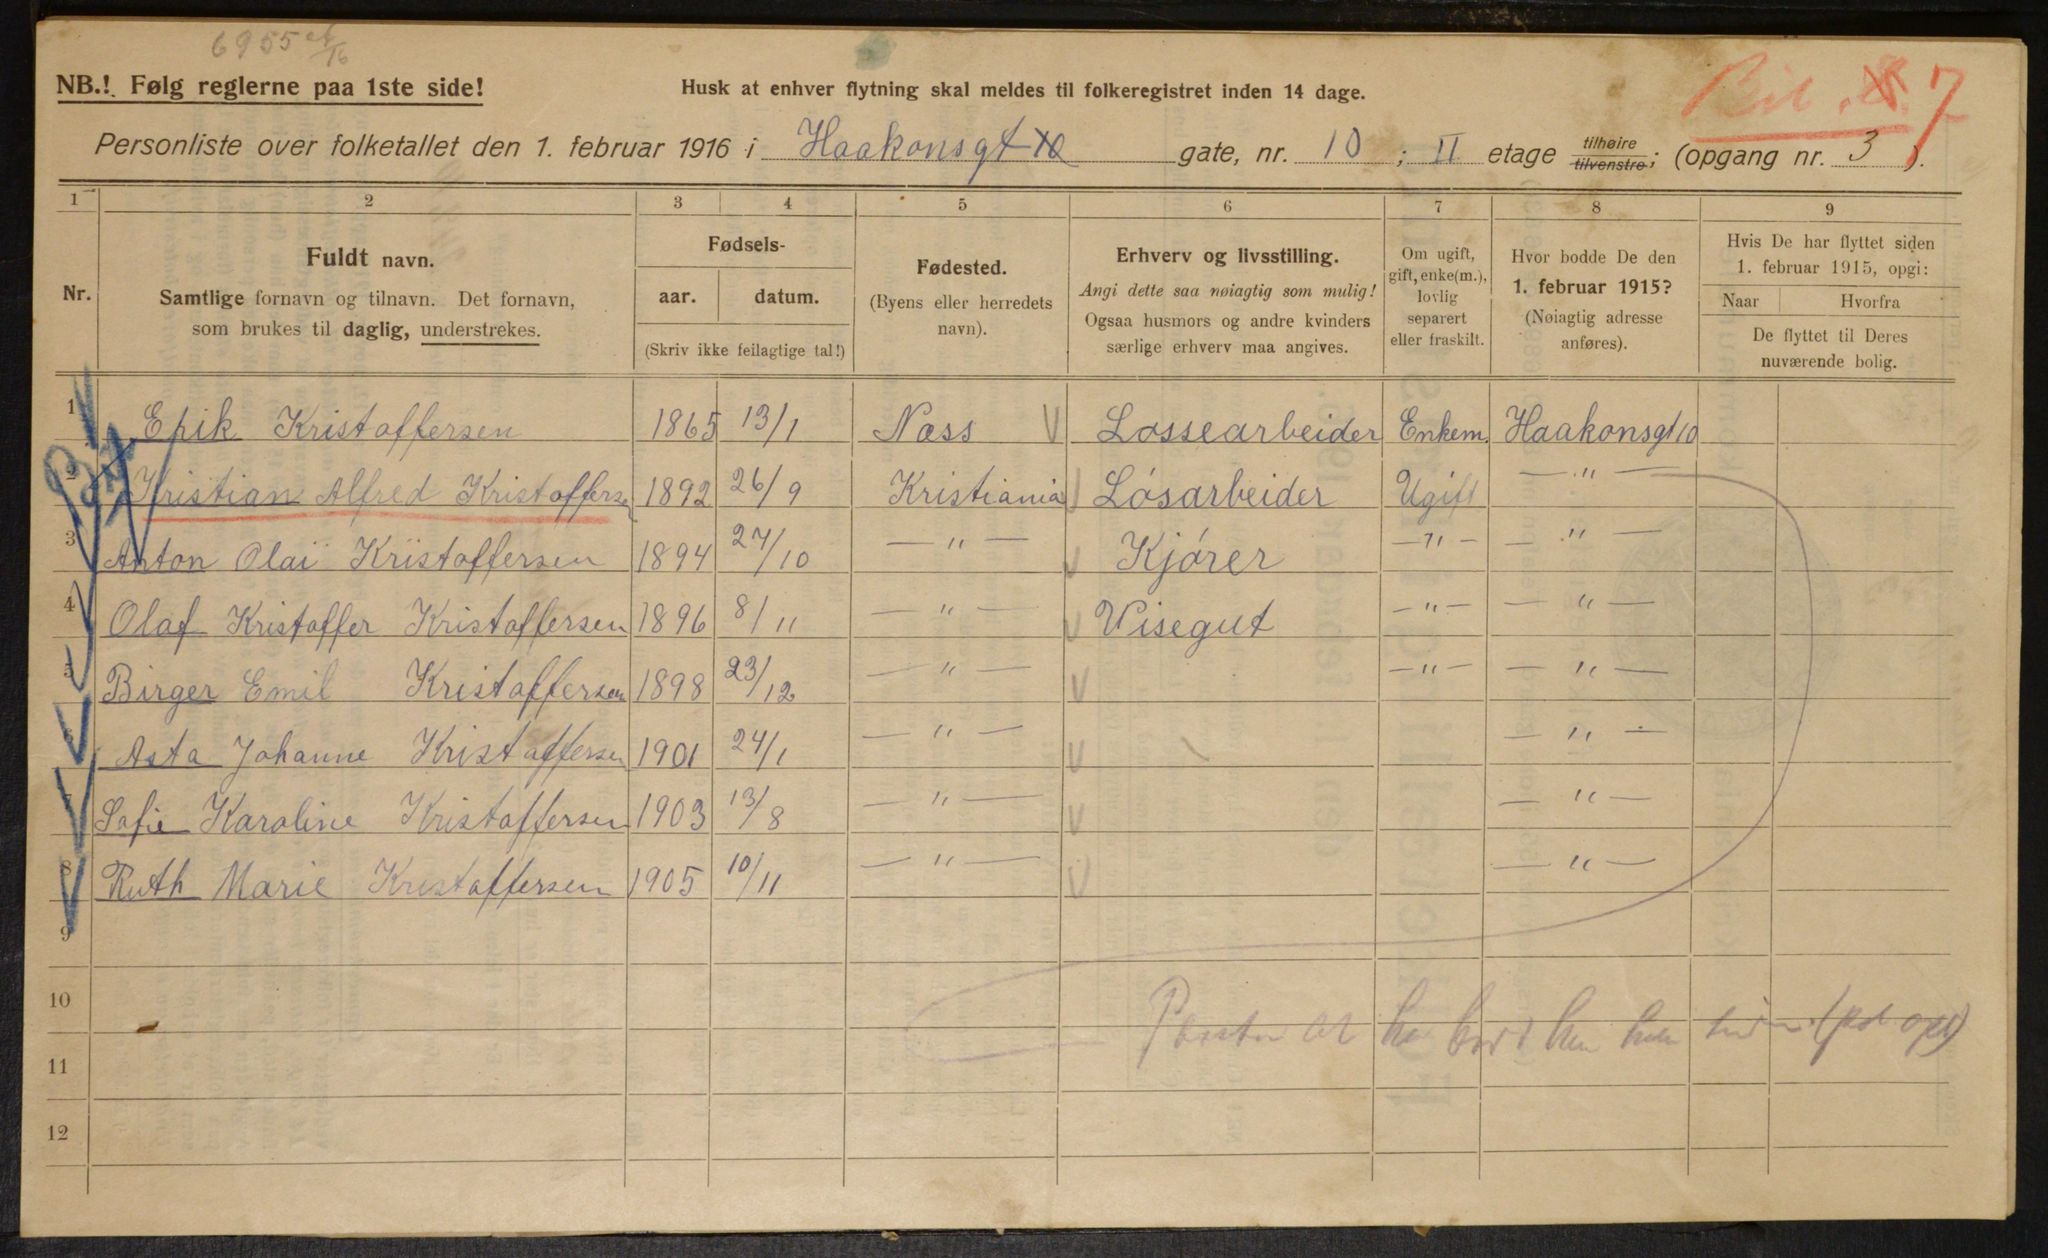 6955
NB.! Følg reglerne paa 1ste side!
Husk at enhver flytning skal meldes til folkeregistret inden 14 dage.
7
Personliste over folketallet den 1. februar 1916 i Haakonsgt gate, nr. 10; II etage tilhøire tilvenstre; (opgang nr. 3).
1 2 3 4 5 6 7 8 9
Nr.
Fuldt navn.
Samtlige fornavn og tilnavn. Det fornavn,
som brukes til daglig, understrekes.
Fødsels-
aar. datum.
(Skriv ikke feilagtige tal!)
Fødested.
(Byens eller herredets
navn).
Erhverv og livsstilling.
Angi dette saa nøiagtig som mulig!
Ogsaa husmors og andre kvinders
særlige erhverv maa angives.
Om ugift,
gift, enke(m.),
lovlig
separert
eller fraskilt.
Hvor bodde De den
1. februar 1915?
(Nøiagtig adresse
anføres).
Hvis De har flyttet siden
1. februar 1915, opgi:
Naar Hvorfra
De flyttet til Deres
nuværende bolig.
1 Erik Kristoffersen 1865 13/1 Næss Lossearbeider Enkem. Haakonsgt 10
2 Kristian Alfred Kristoffersen 1892 26/9 Kristiania Løsarbeider Ugift — " —
3 Anton Olai Kristoffersen 1894 27/10 — " — Kjører — " — — " —
4 Olaf Kristoffer Kristoffersen 1896 8/11 — " — Visegut — " — — " —
5 Birger Emil Kristoffersen 1898 23/12 — " — — " — — " —
6 Asta Johanne Kristoffersen 1901 24/1 — " — — " —
7 Sofie Karoline Kristoffersen 1903 13/8 — " — — " —
8 Ruth Marie Kristoffersen 1905 10/11 — " — — " —
9
10
11
12